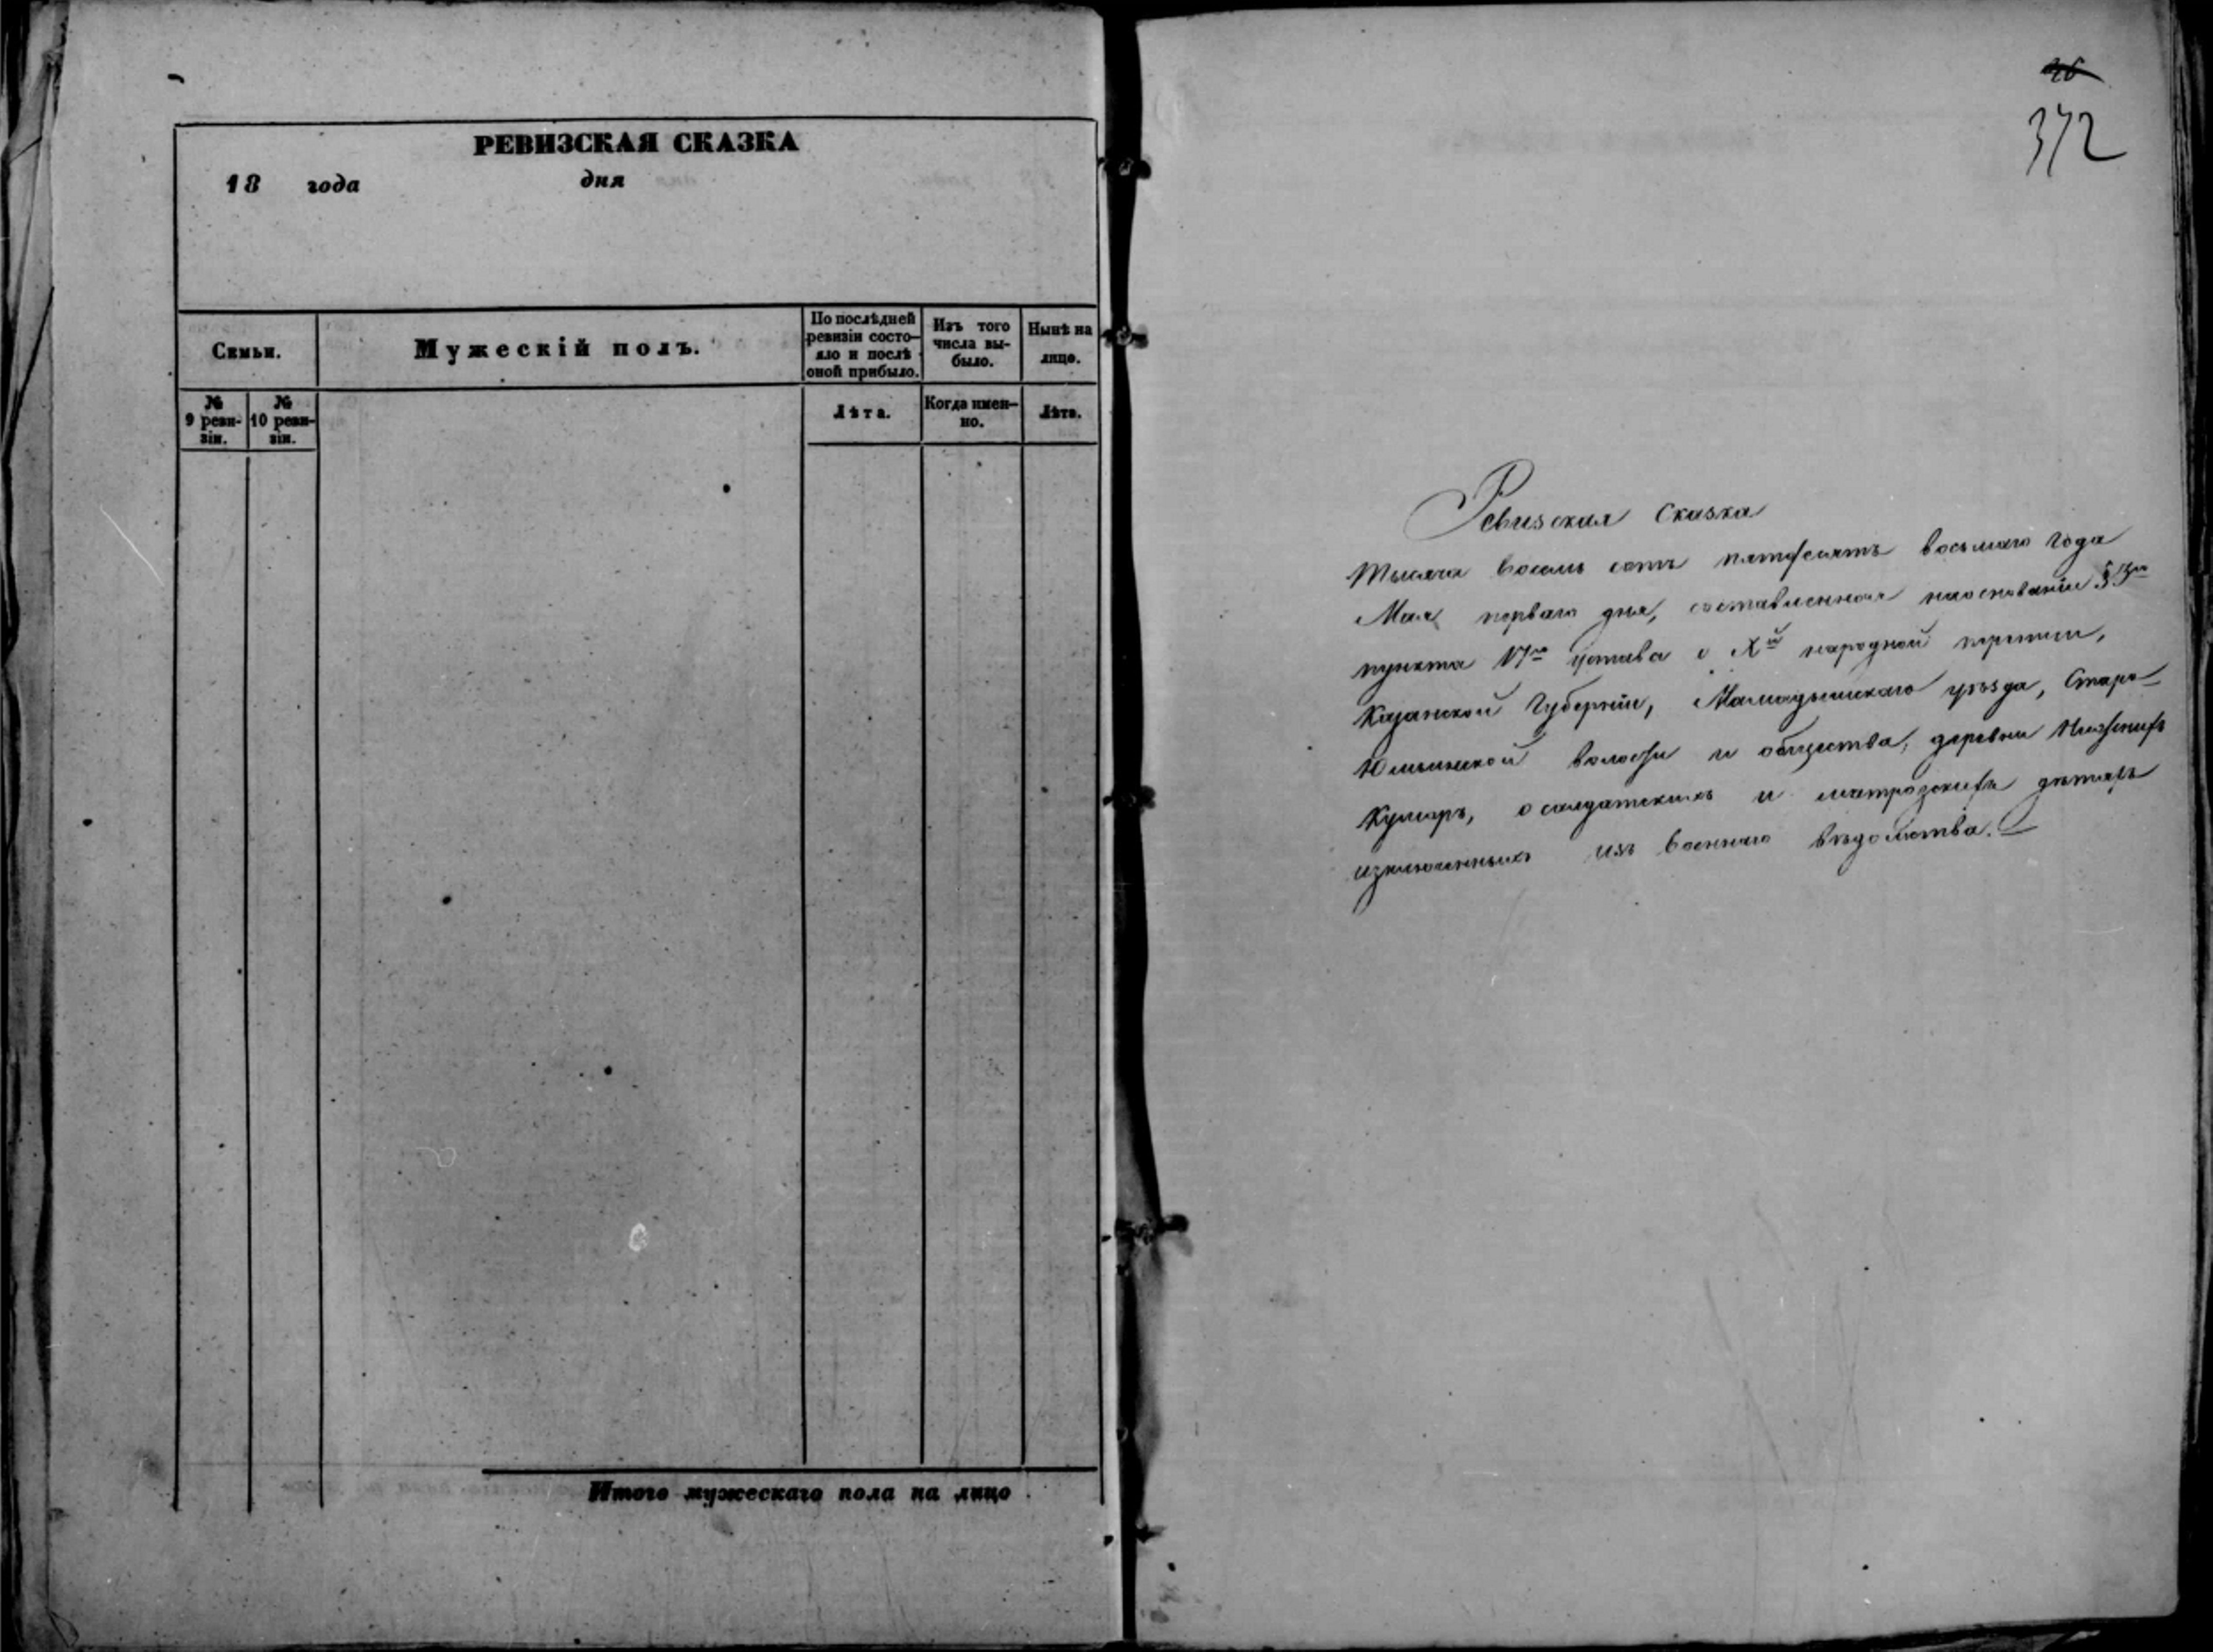 РЕВИЗСКАЯ СКАЗКА
18 года дня
Симьи.
Мужескій полъ.
По послѣдней ревизіи состо-
яло и послѣ
оной прибыло.
Изъ того
числа вы-
было.
Нынѣ на
лицо.
№
9 реви-
зіи.
№
10 реви-
зіи.
Лѣта.
Когда имен-
но.
Лѣта.
Итого мужескаго пола на лицо
26
372
Ревизская Сказка
Тысяча восемь сотъ пятдесятъ восьмаго года
Мая перваго дня, составленная наоснованіи § 3го
пункта уставa о Xй народной переписи,
Казанской Губерніи, Мамадышскаго уѣзда, Старо-
Юмьинской волости и общества, деревни Нижнихъ
Куморъ, о солдатскихъ и матрозскихъ дѣтяхъ
изключенныхъ изъ военнаго вѣдомства.